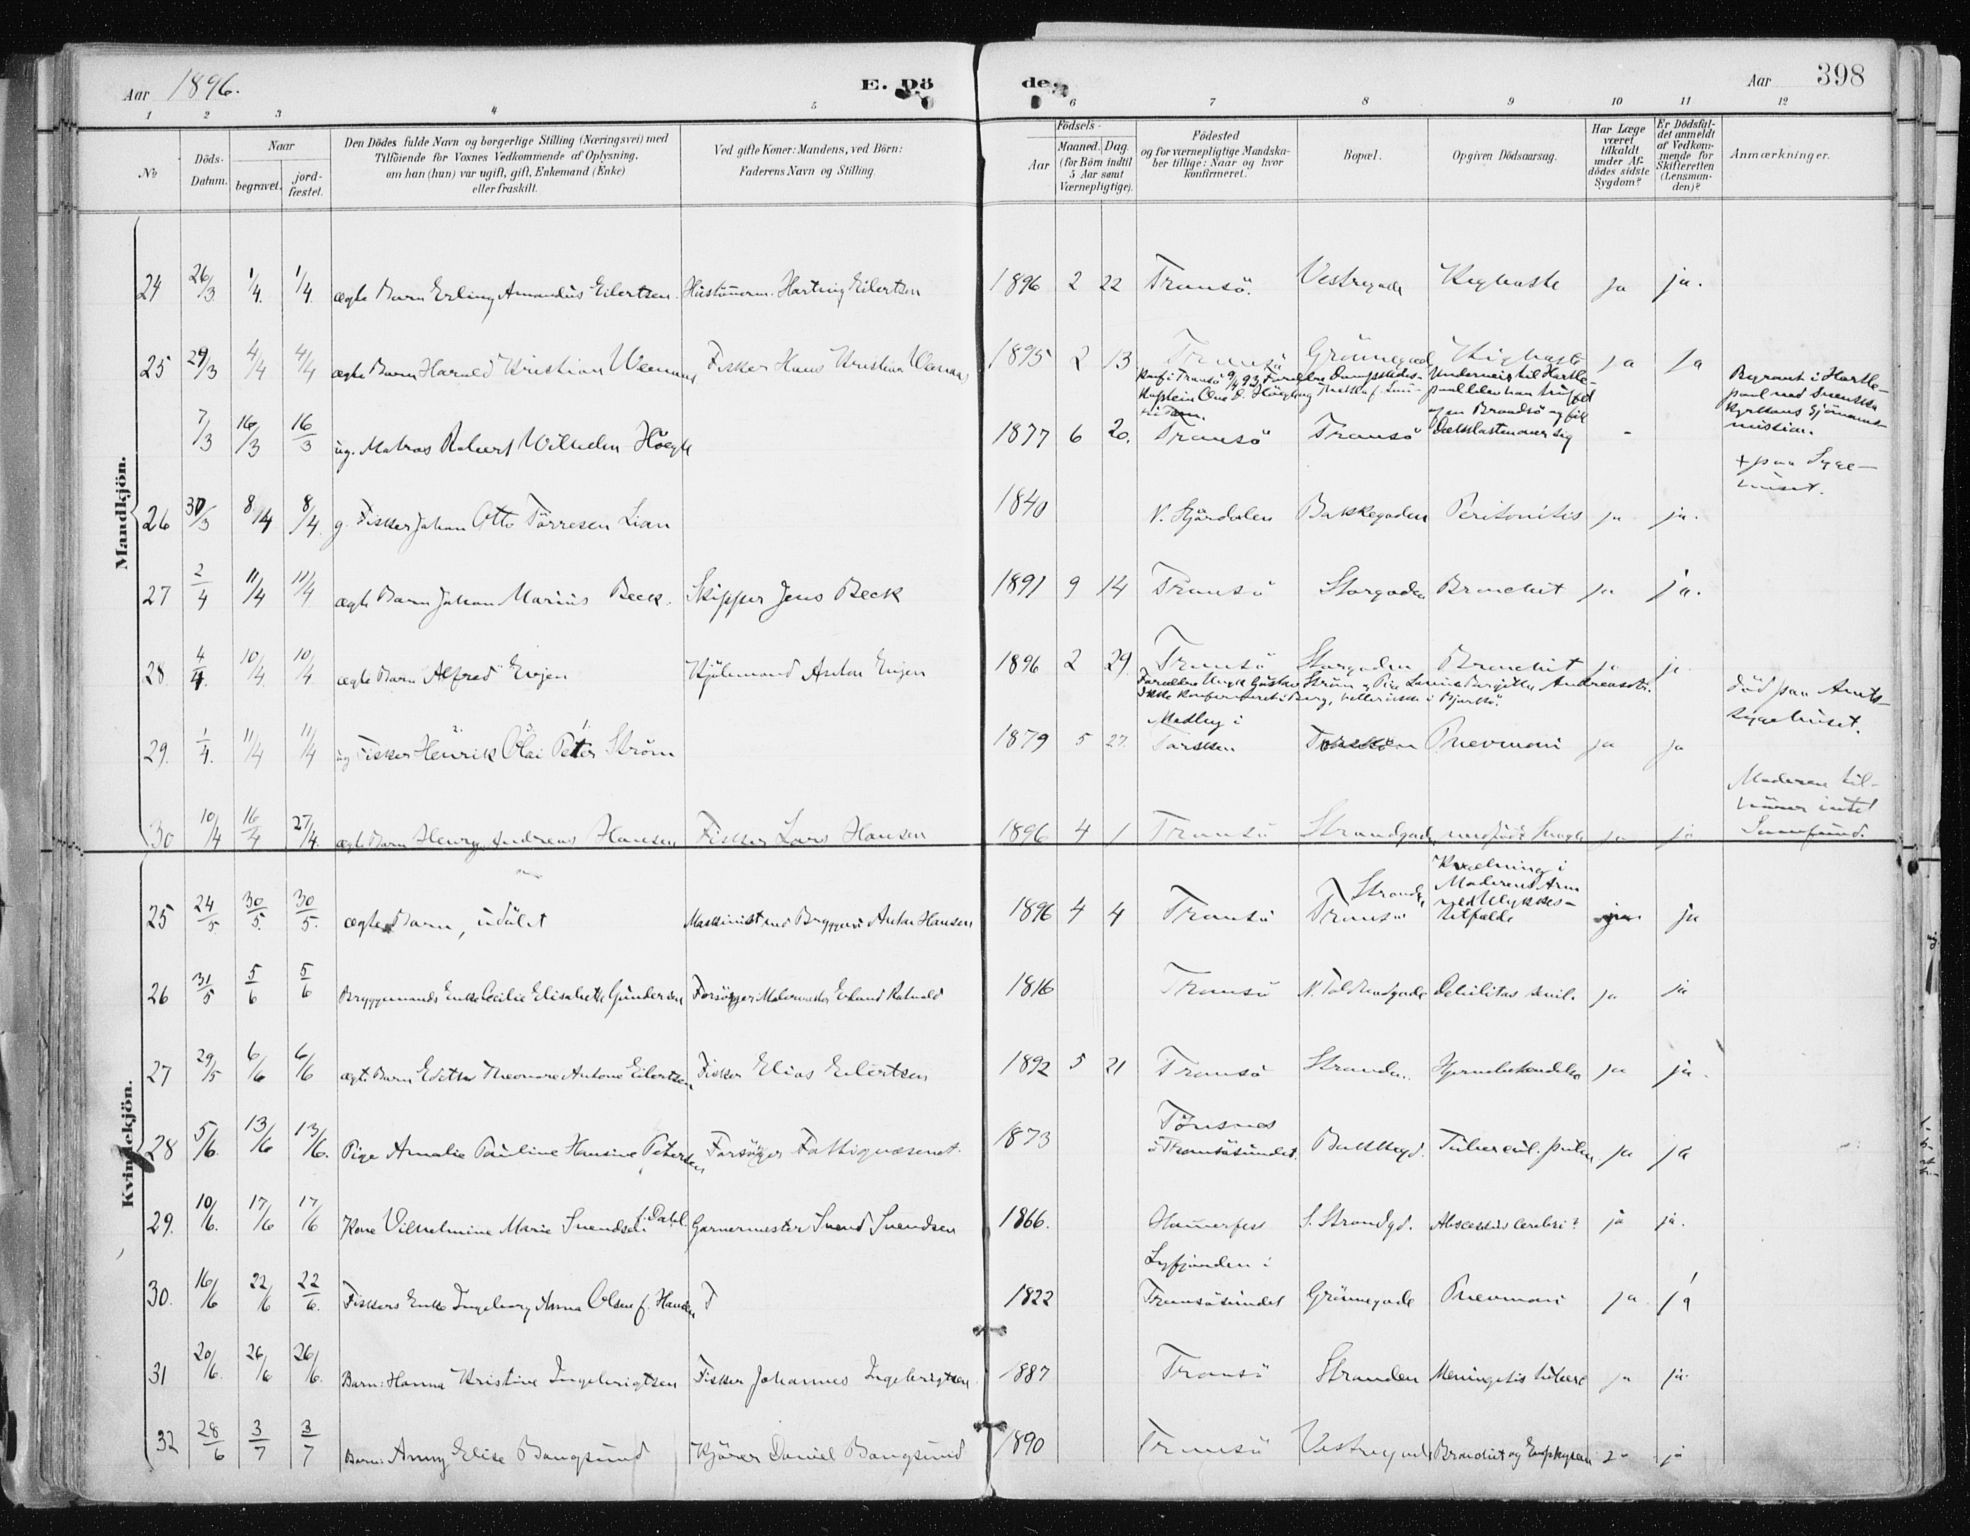 Aar 1896. E. Dö de. Aar 398
1 2 3 4 5 6 7 8 9 10 11 12
No
Döds-Datum.
Naar
begravet.
jord-fæstet.
Den Dödes fulde Navn og borgerlige Stilling (Næringsvei) med
Tilföiende for Voxnes Vedkommende af Oplysning,
om han (hun) var ugift, gift, Enkemand (Enke)
eller fraskilt.
Ved gifte Koner: Mandens, ved Börn:
Faderens Navn og Stilling
Födsels-
Aar
Maaned. Dag.
(for Börn indtil
5 Aar samt
Værnepligtige).
Födested
og for værnepligtige Mandska-
ber tillige: Naar og hvor
konfirmeret.
Bopæl.
Opgiven Dödsaarsag.
Har Læge
været
tilkaldt
under Af-
dödes sidste
Sygdom?
Er Dödsfal-
det anmeldt
af Vedkom-
mende for
Skifteretten
(Lensman-
den)?
Anmærkninger.
Mandkjön.
24 26/3 1/4 1/4 ægte Barn Erling Amandus Eilertsen. Hartvig Eilertsen 1896 2 22 Tromsö. Vestregade Kighoste ja ja.
25 29/3 4/4 4/4 ægte Barn Harald Kristian Fisker Hans Kristian 1895 2 13 Tromsö Grönnegad Kighoste ja ja
Konf i Tromsö 9/4 93. Forældre Underveis til Hartle-
Begravet i Hartle-
pool med Svenska
Kyrkans Sjömans-
mission.
7/3 16/3 16/3 ug. Matros Robert Wilhelm Höegh 1877 6 20. Tromsö Tromsö Dækslasten over sig -
+ paa Syge-
huset.
26 30/3 8/4 8/4 g. Fisker Johan Otto Törresen Lian 1840 N. Stjördalen Bakkegaden Peritonitis ja ja.
27 2/4 11/4 11/4 ægte Barn Johan Marius Beck. Skipper Jens Beck 1891 9 14 Tromsö Storgaden Bronchit ja ja.
28. 4/4. 10/4. 10/4 ægte Barn Alfred Evjen Anton Evjen 1896 2 29. Tromsö Storgaden Bronchit ja ja
Död paa Amts-
sygehuset.
29. 1/4. 11/4 11/4 ug Fisker Henrik Olai Peter Ström 1879 5 27. Medby i Torsken Torsken Pnevmoni ja ja
30 10/4 16/4 27/4. ægte Barn Henry Andreas Hansen Fisker Lars Hansen 1896 4 1 Tromsö Strandgade medfödt Svagh. ja ja
Moderen til-
hörer intet
Samfund.
Kvindekjön.
25 24/5. 30/5. 30/5. ægte Barn, udöbt Maskinist ved Bryggeri Anton Hansen 1896 4 4 Tromsö Strand Tromsö Kvælning i
Moderens Arm
ved Ulykkes-
tilfælde ja
26 31/5 5/6 5/6 Bryggemands Enke Cecilie Elisabeth Gundersen Forsörger: Malermester 1816 Tromsö N. Toldbodgade Debilitas senil. ja ja
27 29/5 6/6 6/6 ægte Barn Theonora Antone Eilertsen Fisker Elias Eilertsen 1892 5 21 Tromsö Stranden. Hjernebetændelse ja ja.
28 5/6. 13/6 13/6. Pige Amalie Pauline Hansine Petersen Forsörger Fattigvæsenet. 1873 Tönsnes
i Tromsösundet. Bakkegd. Tubercul. pulm ja ja
29. 10/6. 17/6 17/6 Kone Vilhelmine Marie Svendsen f. Dahl Garvermester Svend Svendsen 1866. Hammerfest S. Strandgd. Abscessus cerebri? ja ja.
30. 16/6 22/6 22/6. Fiskers Enke Ingeborg Anna Olsen f. Hansen F 1822 Lyfjorden i
Tromsösundet Grönnegade Pnevmoni ja ja
31 20/6. 26/6 26/6. Barn: Hanna Kristine Ingebrigtsen Fisker Johannes Ingebrigtsen. 1887 Tromsö Stranden Meningitis tuberc ja ja.
32 28/6 3/7 3/7 Barn: Anny Elise Bangsund Kjörer Daniel Bangsund 1890 Tromsö Vestregade Bronchit og Emphysem ja